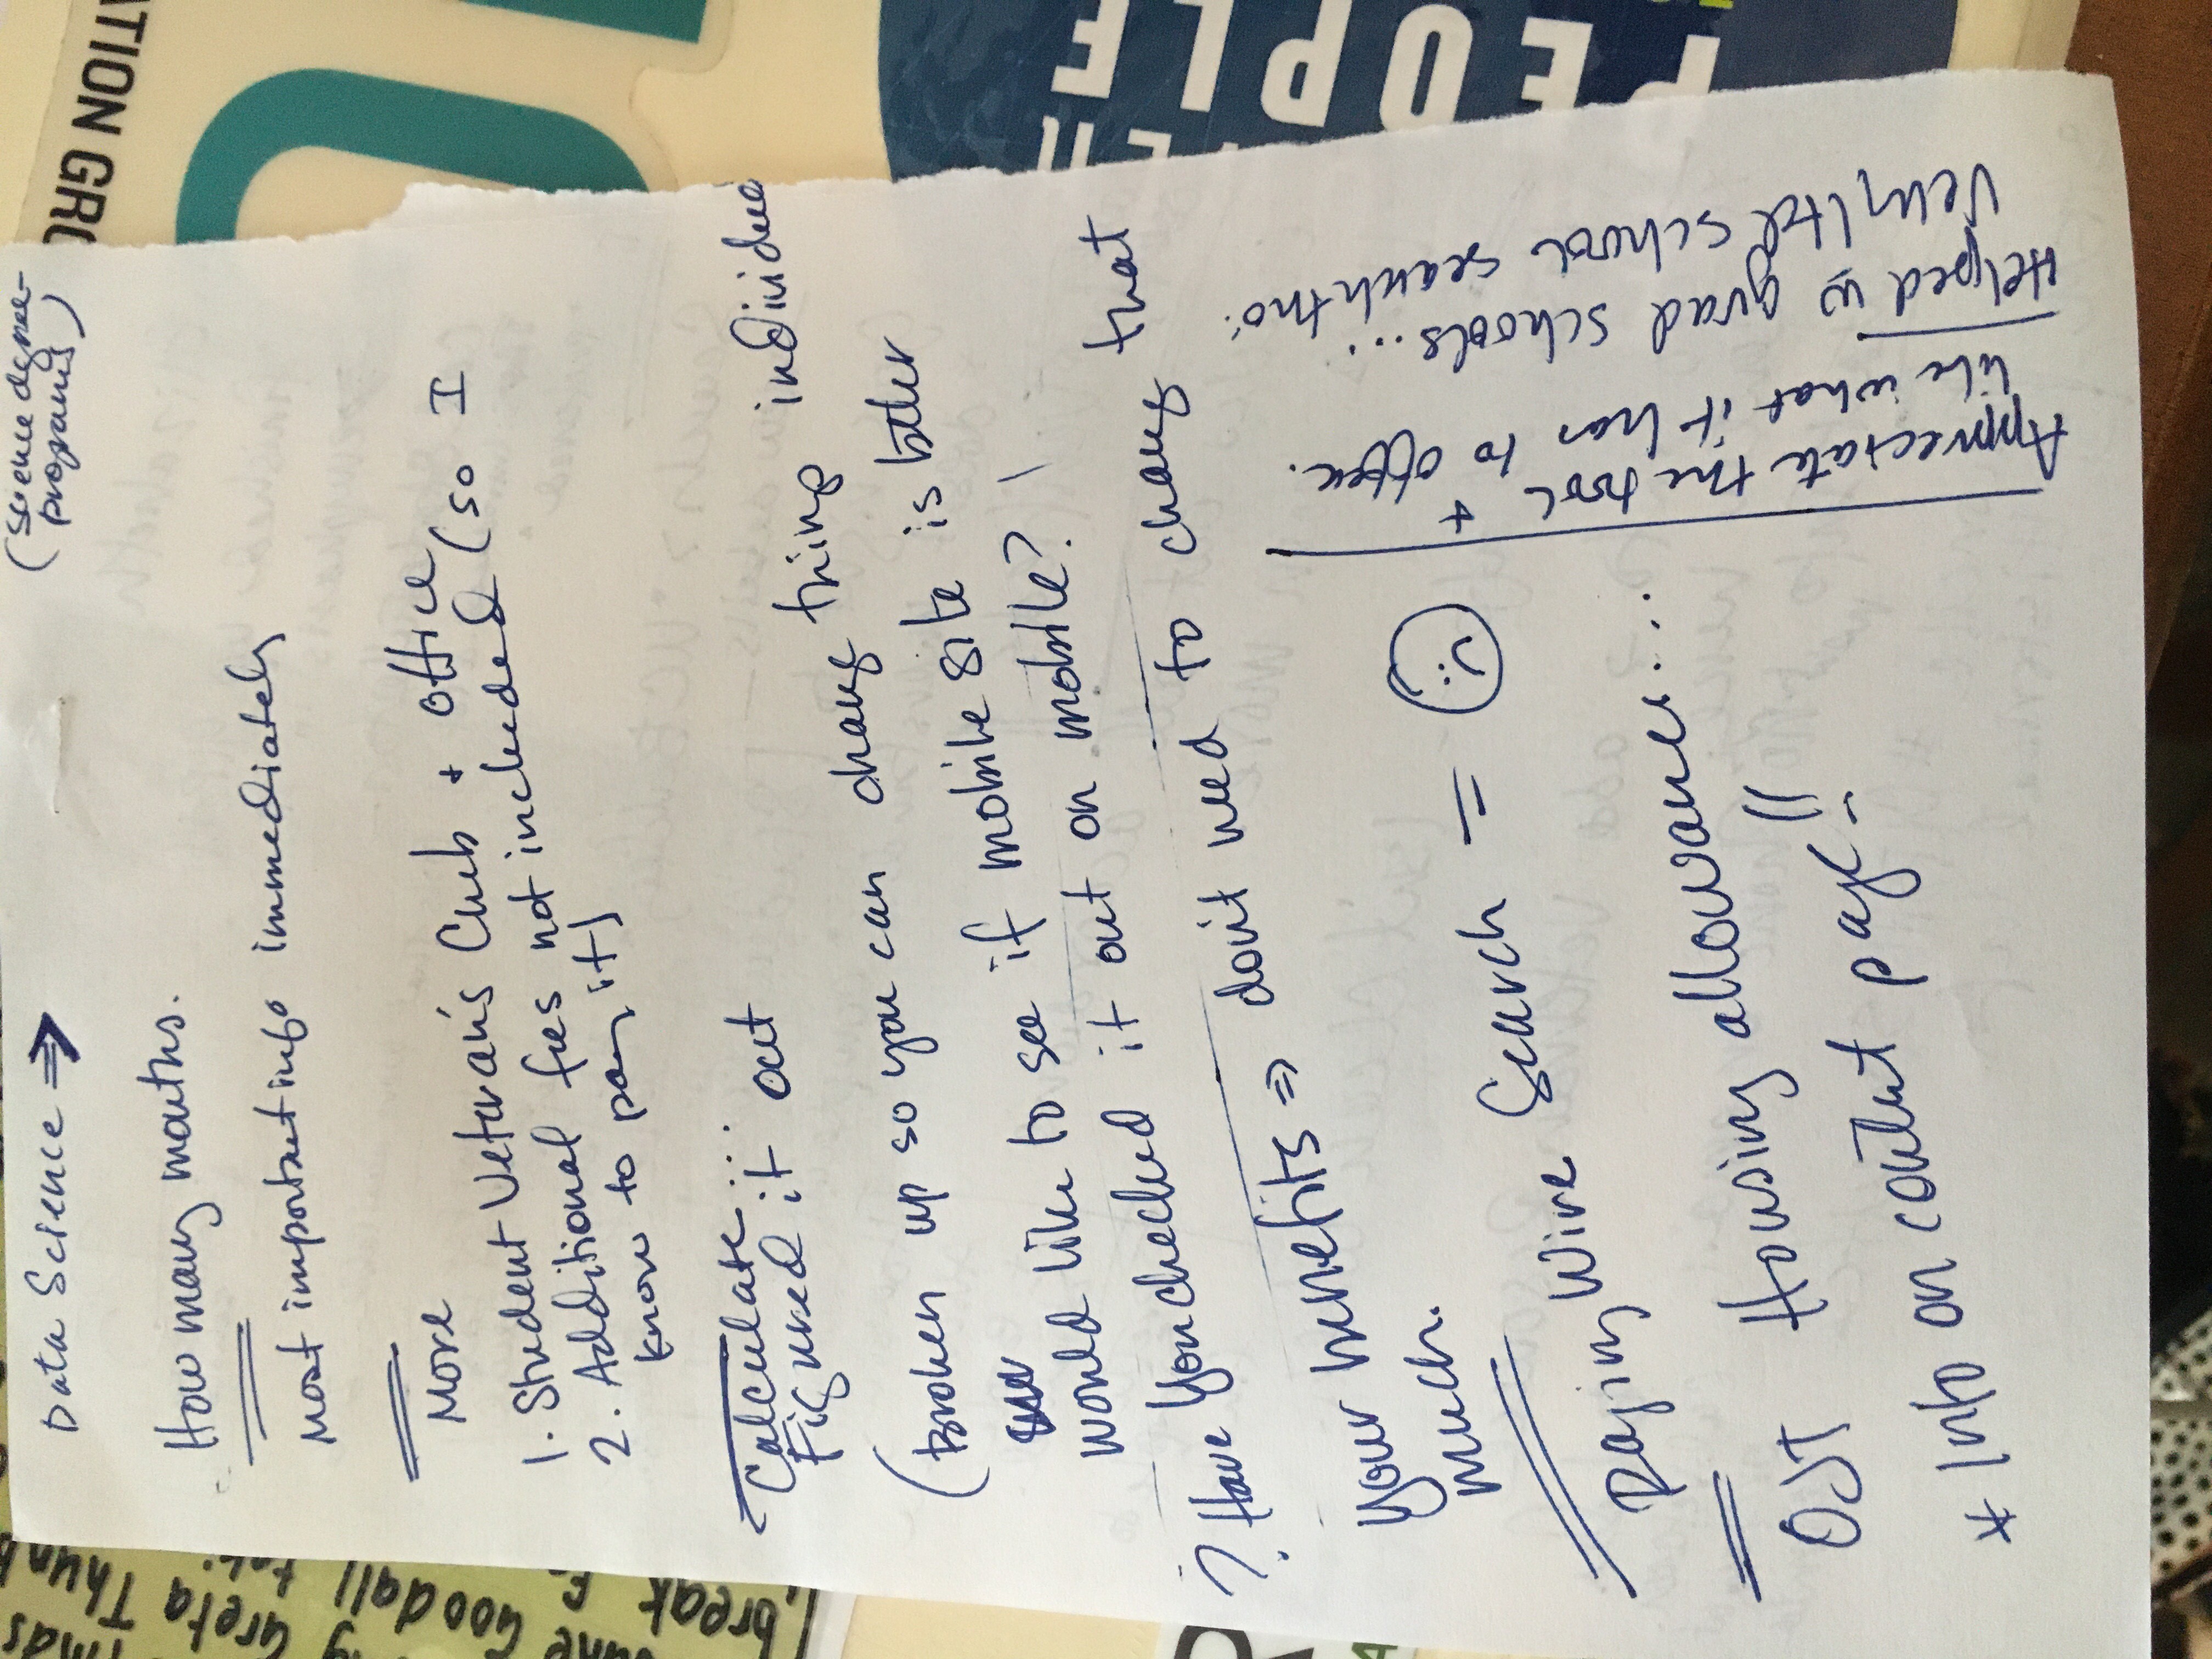 Data Science ⇒
(science dgree-
programs)
How many months.
Most important info immediately
More
1. Student Veteran's Club + office
2. Additional fees not included (so I
know to pay it)
Calculate...
Figured it out
(Broken up so you can change things individual
would like to see if mobile site is better
? Have you checked it out on mobile?
Your benefits ⇒ don't need to change that
much.
Raging Wire Search = ☹
OJT Housing allowance...
* Info on content page!!
Appreciate the tool +
like what it has to offer.
Helped w grad schools...
school search tho.
ATION GRO
PEOPLE
Greta Thun
Goodall
break